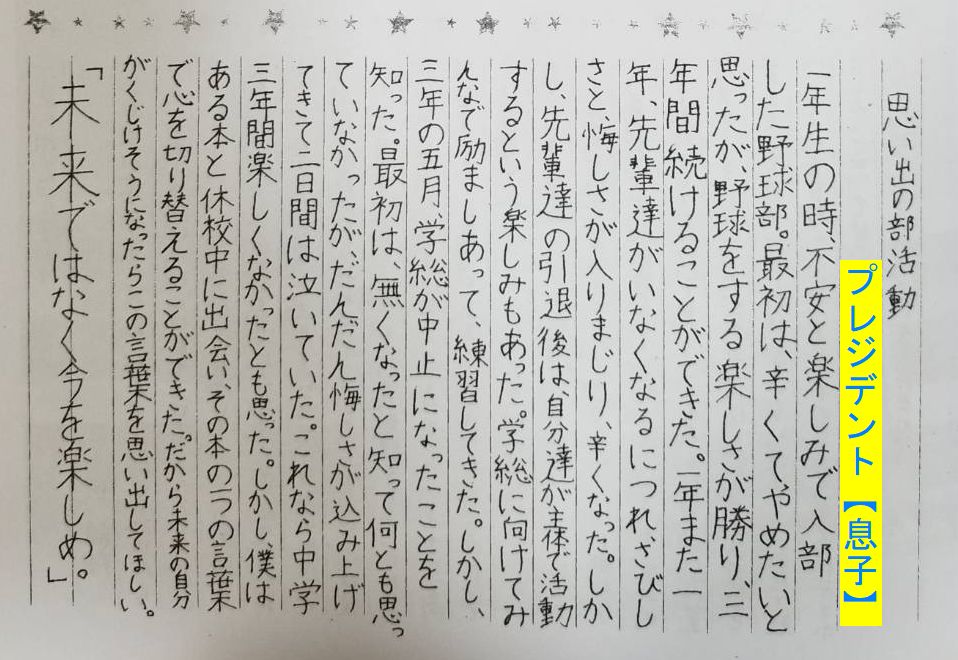 思い出の部活動
プレジデント【息子】
一年生の時、不安と楽しみで入部
した野球部。最初は、辛くてやめたいと
思ったが、野球をする楽しさが勝り、三
年間続けることができた。一年また一
年、先輩達がいなくなるにつれ、さびし
さと悔しさが入りまじり、辛くなった。しか
し、先輩達の引退後は、自分達が主体で活動
するという楽しみもあった。学総に向けてみ
んなで励ましあって、練習してきた。しかし、
三年の五月、学総が中止になったことを
知った。最初は、無くなったと知って何とも思っ
ていなかったが、だんだん悔しさが込み上げ
てきて二日間は泣いていた。これなら中学
三年間楽しくなかったとも思った。しかし、僕は
ある本と休校中に出会い、その本の一つの言葉
で心を切り替えることができた。だから未来の自分
がくじけそうになったらこの言葉を思い出してほしい。
「未来ではなく今を楽しめ。」